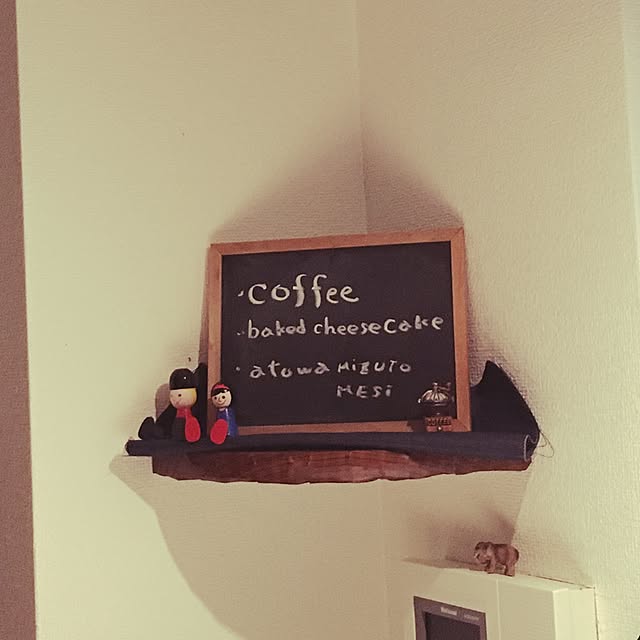 ・coffee
・baked cheesecake
・atowa MIZUTO
MESi
National